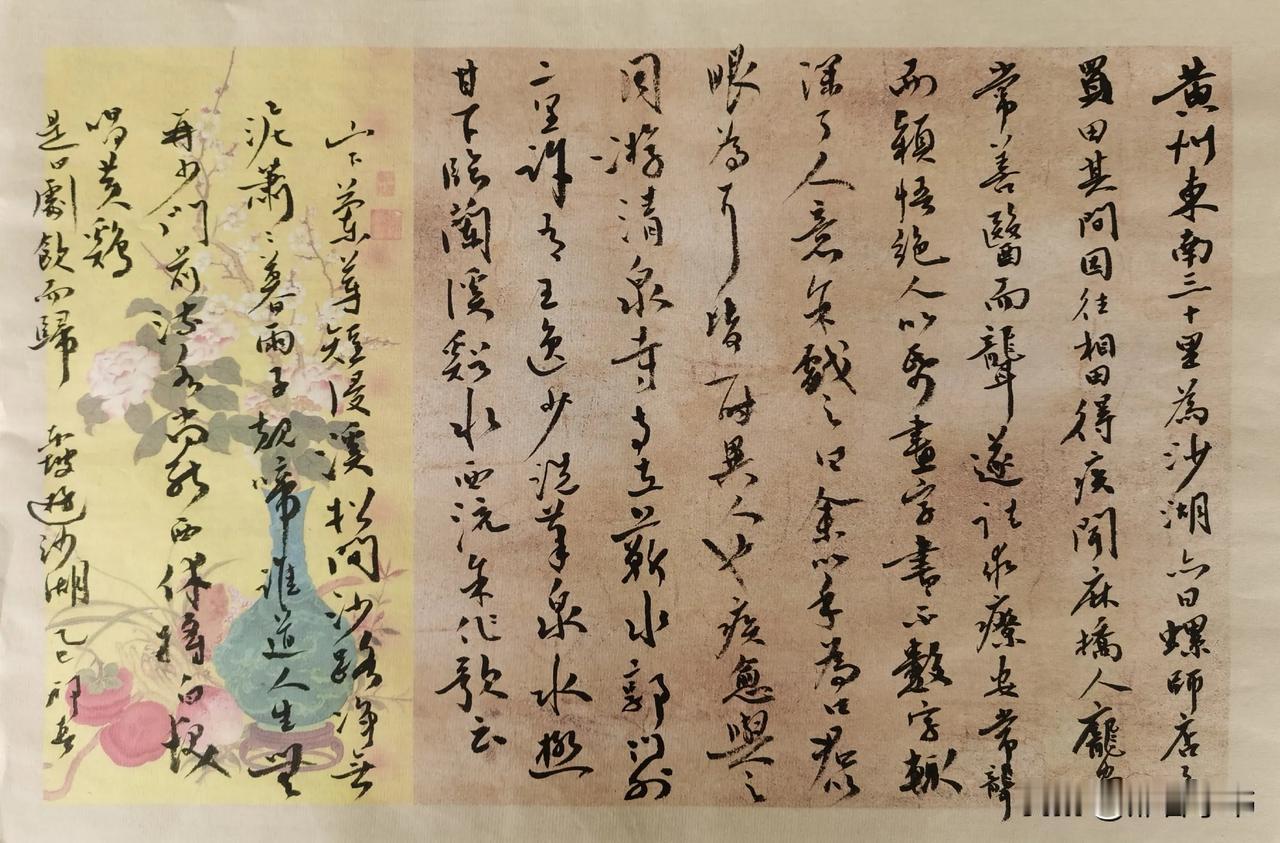 黄州東南三十里為沙湖亦曰螺師店予
買田其間因往相田得疾聞麻橋人龐安
常善醫而聾遂往求療安常聾
而穎悟絶人以紙畫字書不數字輒
深了人意余戲之曰余以手為口君以
眼為耳皆一時異人也疾愈與之
同游清泉寺寺在蘄水郭門外
二里許有王逸少洗筆泉水極
甘下臨蘭溪谿水西流余作歌云
山下蘭芽短浸溪松間沙路净無
泥蕭〻暮雨子規啼誰道人生無
再少門前流水尚能西休將白髮
唱黄鷄
是日劇飲而歸 東坡遊沙湖 乙巳初春